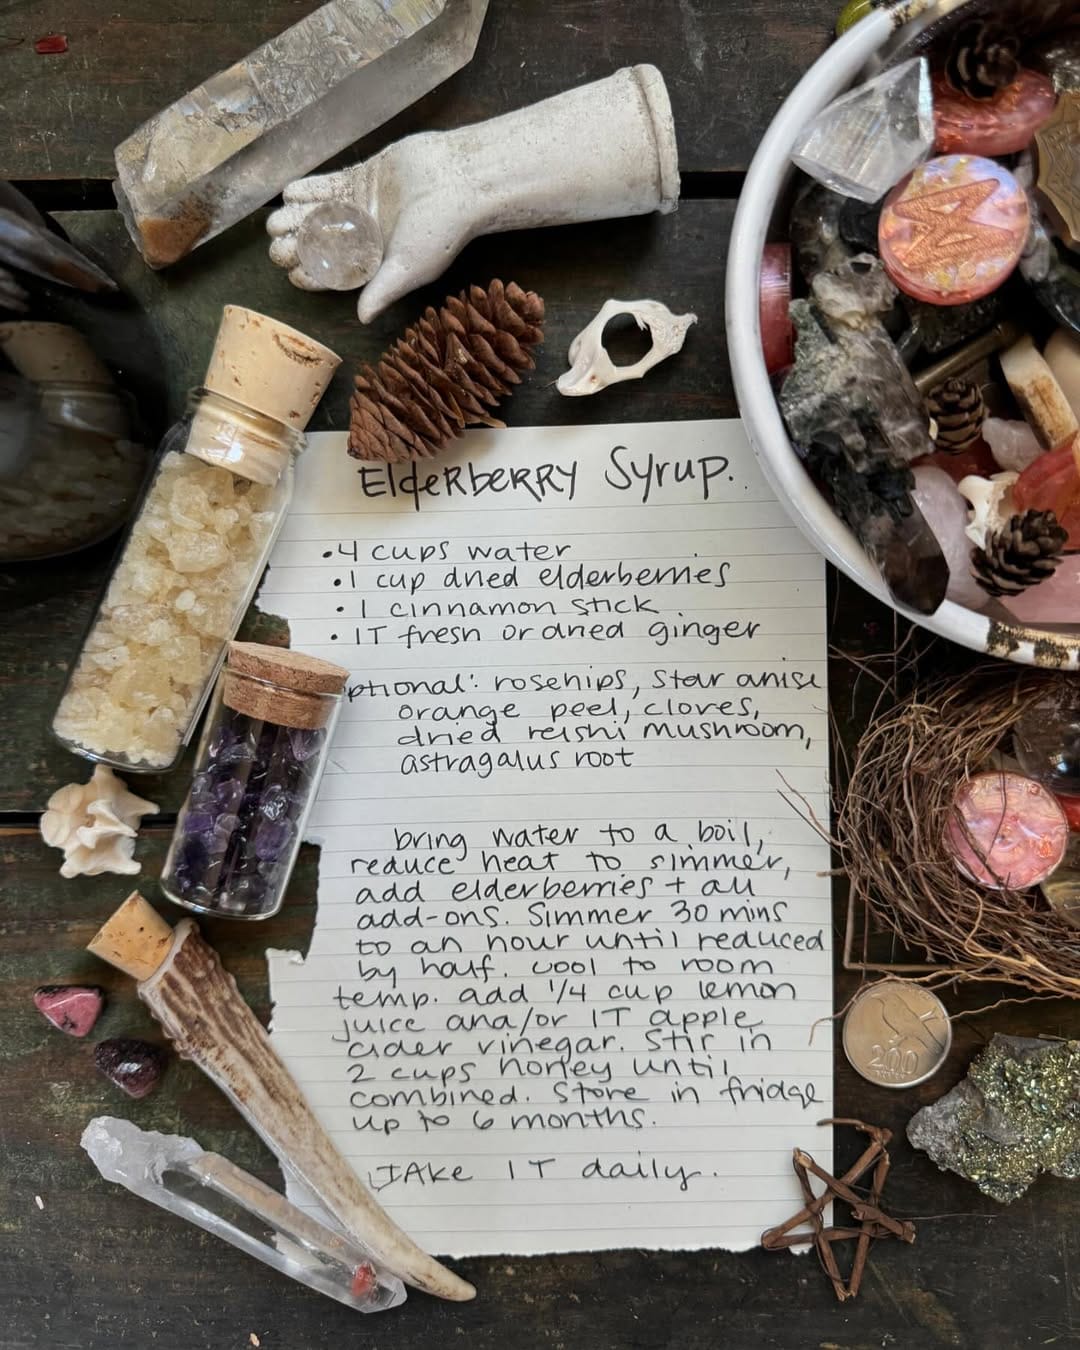 ElderBERRY Syrup.
•4 cups water
•1 cup dried elderberries
• 1 cinnamon stick.
• 1T fresh or dried ginger
ptional: rosehips, star anise
orange peel, cloves,
dried reishi mushroom,
astragalus root
bring water to a boil,
reduce heat to simmer,
add elderberries + all
add-ons. Simmer 30 mins
to an hour until reduced
by half. cool to room
temp. add 1/4 cup lemon
juice and/or 1T apple
cider vinegar. Stir in
2 cups honey until
combined. Store in fridge
up to 6 months.
TAke 1T daily.
200